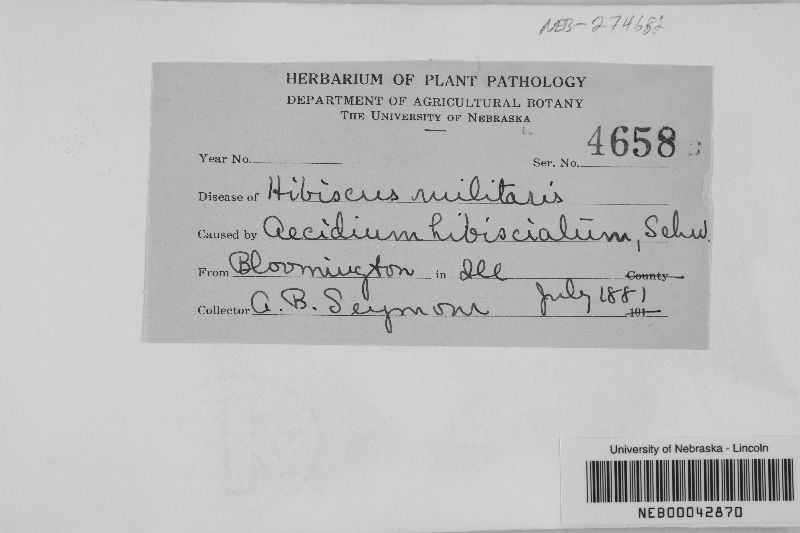 NEB-274682
HERBARIUM OF PLANT PATHOLOGY
DEPARTMENT OF AGRICULTURAL BOTANY
THE UNIVERSITY OF NEBRASKA
Year No. Ser. No. 4658
Disease of Hibiscus militaris
Caused by Aecidium hibiscialum, Schw.
From Bloomington in Ill County
Collector A. B. Seymour July 1881 191
University of Nebraska - Lincoln
NEB00042870